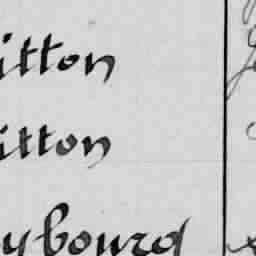 itton
itton
ybourg